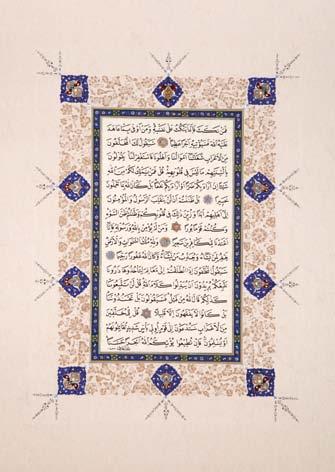 فمن نكث فإنما ينكث على نفسه ومن أوفى بما عاهد
عليه الله فسيؤتيه أجرا عظيما سيقول لك المخلفون
من الأعراب شغلتنا أموالنا وأهلونا فاستغفر لنا يقولون
بألسنتهم ما ليس في قلوبهم قل فمن يملك لكم من الله
شيئا إن أراد بكم ضرا أو أراد بكم نفعا بل كان الله بما تعملون
خبيرا بل ظننتم أن لن ينقلب الرسول والمؤمنون
إلى أهليهم أبدا وزين ذلك في قلوبكم وظننتم ظن السوء
وكنتم قوما بورا ومن لم يؤمن بالله ورسوله فإنا
أعتدنا للكافرين سعيرا ولله ملك السموات والأرض
يغفر لمن يشاء ويعذب من يشاء وكان الله غفورا رحيما
سيقول المخلفون إذا انطلقتم إلى مغانم لتأخذوها ذرونا
نتبعكم يريدون أن يبدلوا كلام الله قل لن تتبعونا
كذلكم قال الله من قبل فسيقولون بل تحسدوننا
بل كانوا لا يفقهون إلا قليلا قل للمخلفين
من الأعراب ستدعون إلى قوم أولي بأس شديد تقاتلونهم
أو يسلمون فإن تطيعوا يؤتكم الله أجرا حسنا